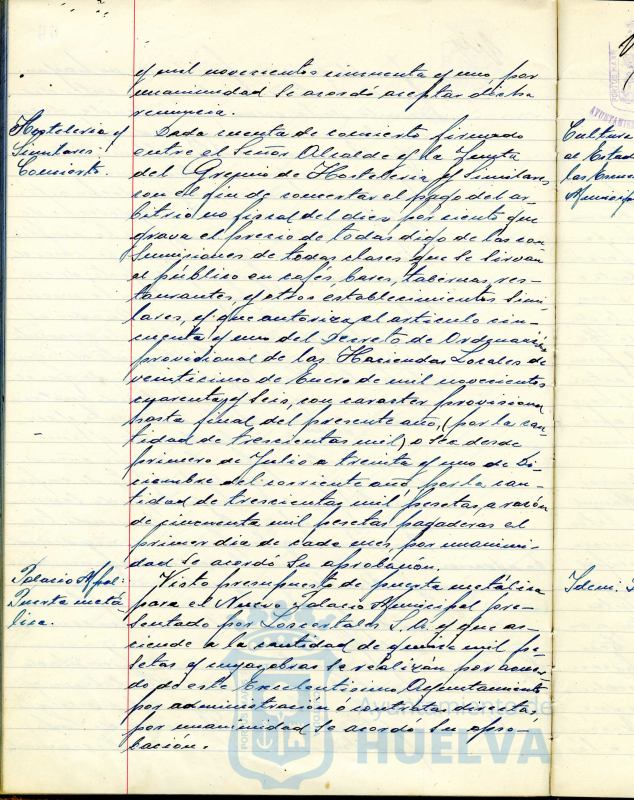 y mil novecientos cincuenta y uno, por
unanimidad se acordó aceptar dicha
renuncia.
Hostelería y
Similares:
Concierto.
Dada cuenta de concierto firmado
entre el Señor Alcalde y la Junta
del Gremio de Hostelería y Similares
con el fin de concertar el pago del ar-
bitrio no fiscal del diez por ciento que
grava el precio de todas digo de las con
sumiciones de todas clases que se sirvan
al público en cafés, bares, tabernas, res-
taurantes, y otros establecimientos simi-
lares, y que autoriza el artículo cin-
cuenta y uno del Decreto de Ordenación
provisional de las Haciendas Locales de
veinticinco de Enero de mil novecientos
cuarenta y seis, con caracter provisional
hasta final del presente año, (por la can-
tidad de trescientas mil) o sea desde
primero de Julio a treinta y uno de Di-
ciembre del corriente año, por la can-
tidad de trescientas mil pesetas, a razón
de cincuenta mil pesetas pagaderas el
primer dia de cada mes, por unanimi-
dad se acordó su aprobación.
Palacio Mpal:
Puerta metá-
lica.
Visto presupuesto de puerta metálica
para el Nuevo Palacio Municipal pre-
sentado por Loscertales S.A. y que as-
ciende a la cantidad de quince mil pe-
setas y cuyas obras se realizan por acuer-
do de este Excelentísimo Ayuntamiento
por administración o contrata directa,
por unanimidad se acordó su apro-
bación.
Cultura
al Estad
las Escue
Municip
Idem:
Ayuntamiento de
HUELVA